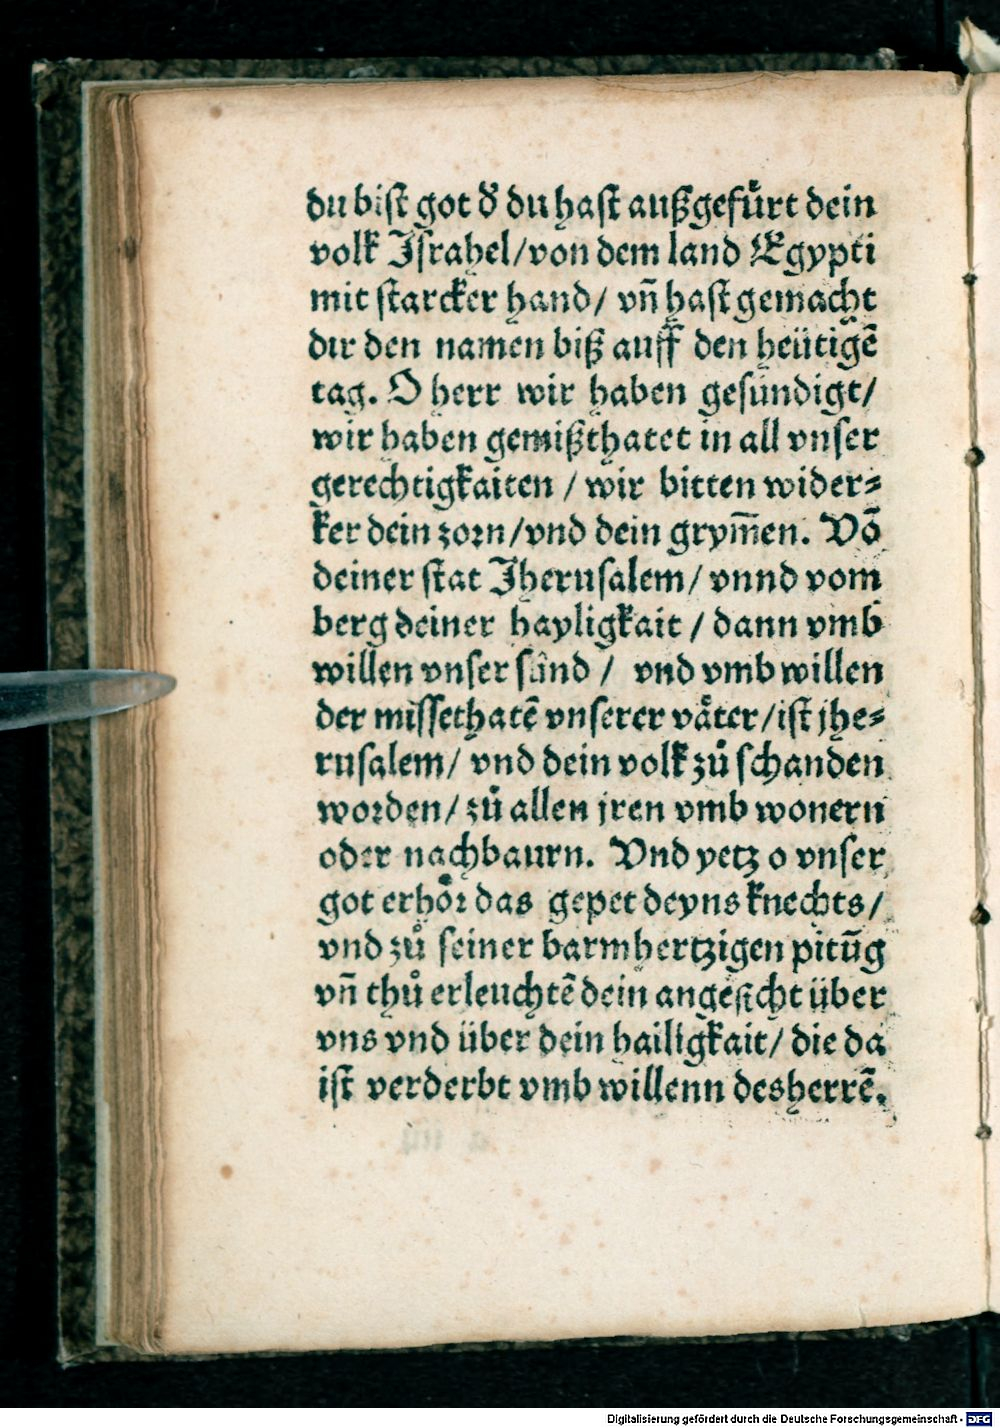 du bist got d̕ du hast außgefürt dein
volk Israhel/von dem land Egypti
mit starcker hand/ vñ hast gemacht
dir den namen biß auff den heütigẽ
tag. O herr wir haben gesündigt/
wir haben gemißthatet in all vnser
gerechtigkaiten / wir bitten wider⸗
ker dein zorn/vnd dein grym̃en. Võ
deiner stat Jherusalem/ vnnd vom
berg deiner hayligkait / dann vmb
willen vnser sünd / vnd vmb willen
der missethatẽ vnserer väter/ist jhe⸗
rusalem/ vnd dein volk zů schanden
worden/ zů allen jren vmb wonern
oder nachbaurn. Vnd yetz o vnser
got erhör das gepet deyns knechts/
vnd zů seiner barmhertzigen pitũg
vñ thů erleuchtẽ dein angesicht über
vns vnd über dein hailigkait/ die da
ist verderbt vmb willenn des herrẽ.
Digitalisierung gefördert durch die Deutsche Forschungsgemeinschaft - DFG